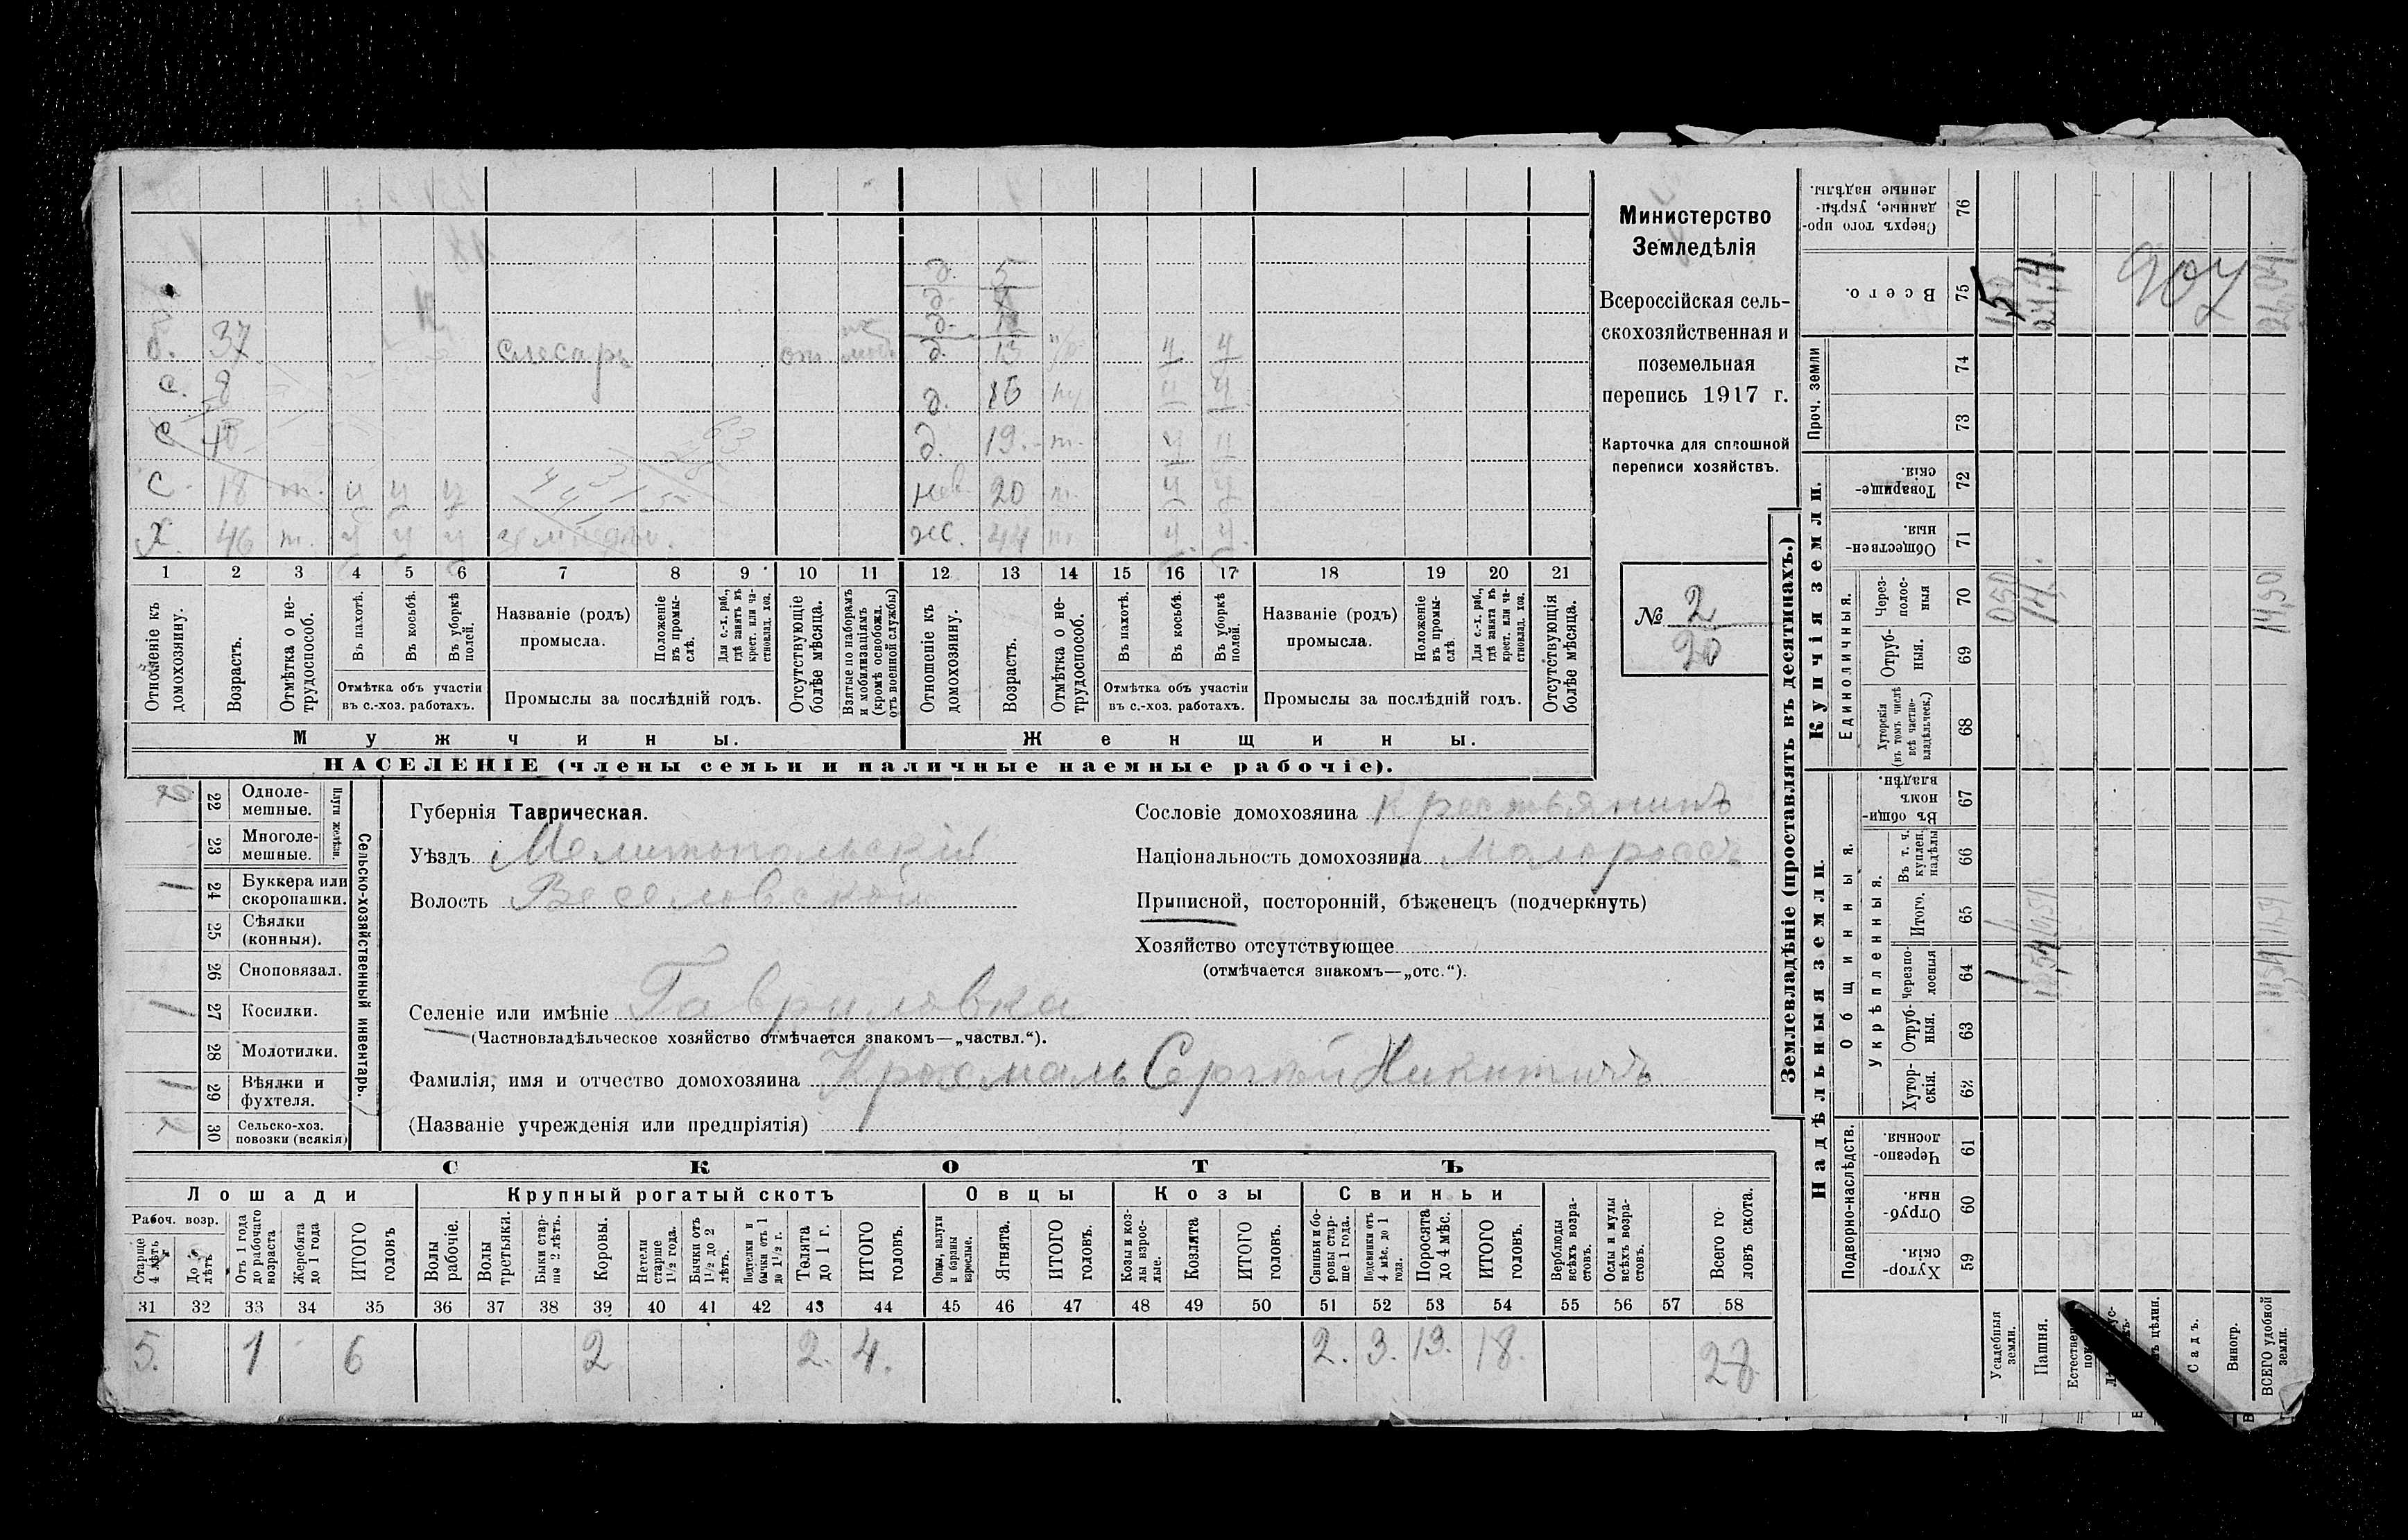 Министерство
Земледѣлія
Всероссійская сель-
скохозяйственная и
поземельная
перепись 1917 г.
Карточка для сплошной
переписи хозяйствъ.
№ 2
20
д. 5
д.
д.
б. 37 слесарь д. 13 ч ч
с. 8 д. 16 ч ч
с 10 д. 19. т. ч ч
с. 18 т. ч ч ч нев. 20 т. ч ч
х. 46 т. ч ч ч ж. 44 т ч. ч.
1 2 3 4 5 6 7 8 9 10 11 12 13 14 15 16 17 18 19 20 21
Отношеніе къ домохозяину.
Возрастъ.
Отмѣтка о не-трудоспособ.
Въ пахотѣ.
Въ косьбѣ.
Въ уборкѣ полей.
Отмѣтка объ участіи
въ с.-хоз. работахъ.
Названіе (родъ)
промысла.
Положеніе въ промы-слѣ.
Для с.-х. раб., гдѣ занятъ въ крест. или ча-стновлад. хоз.
Промыслы за послѣдній годъ.
Отсутствующіе болѣе мѣсяца.
Взятые по наборамъ и мобилизаціямъ (кромѣ освобожд. отъ военной службы)
Отношеніе къ домохозяину.
Возрастъ.
Отмѣтка о не-трудоспособ.
Въ пахотѣ.
Въ косьбѣ.
Въ уборкѣ полей.
Отмѣтка объ участіи
въ с.-хоз. работахъ.
Названіе (родъ)
промысла.
Положеніе въ промы-слѣ.
Для с.-х. раб., гдѣ занята въ крест. или ча-стновлад. хоз.
Промыслы за послѣдній годъ.
Отсутствующія болѣе мѣсяца.
Мужчины. Женщины.
НАСЕЛЕНІЕ (члены семьи и наличные наемные рабочіе).
Сельско-хозяйственный инвентарь.
Плуги желѣзн.
22 Одноле-
мешные.
23 Многоле-
мешные.
1 24 Буккера или
скоропашки.
25 Сѣялки
(конныя).
26 Сноповязал.
1 27 Косилки.
28 Молотилки.
1 29 Вѣялки и
фухтеля.
30 Сельско-хоз.
повозки (всякія)
Губернія Таврическая.
Уѣздъ Мелитопольскій
Волость Веселовской
Селеніе или имѣніе Гавриловка
(Частновладѣльческое хозяйство отмѣчается знакомъ—„частвл.“).
Фамилія, имя и отчество домохозяина Крохмаль Сергѣй Никитичъ
(Названіе учрежденія или предпріятія)
Сословіе домохозяина Крестьянинъ
Національность домохозяина Малороссъ
Приписной, посторонній, бѣженецъ (подчеркнуть)
Хозяйство отсутствующее
(отмѣчается знакомъ—„отс.“).
СКОТЪ
Лошади Крупный рогатый скотъ Овцы Козы Свиньи
Рабоч. возр.
Старше 4 лѣтъ
До лѣтъ
Отъ 1 года до рабочаго возраста
Жеребята до 1 года
ИТОГО головъ
Волы рабочіе.
Волы третьяки.
Быки стар-ше 2 лѣтъ.
Коровы.
Нетели старше 1½ года.
Бычки отъ 1½ до 2 лѣтъ.
Подтелки и бычки отъ 1 до 1½ г.
Телята до 1 г.
ИТОГО головъ.
Овцы, валухи и бараны взрослые.
Ягнята.
ИТОГО головъ.
Козы и коз-лы взрос-лые.
Козлята
ИТОГО головъ.
Свиньи и бо-ровы стар-ше 1 года.
Подсвинки отъ 4 мѣс. до 1 года.
Поросята до 4 мѣс.
ИТОГО головъ.
Верблюды всѣхъ возра-стовъ.
Ослы и мулы всѣхъ возра-стовъ.
Всего го-ловъ скота.
31 32 33 34 35 36 37 38 39 40 41 42 43 44 45 46 47 48 49 50 51 52 53 54 55 56 57 58
5. 1 6 2 2. 4. 2. 3. 13. 18. 28
Землевладѣніе (проставлять въ десятинахъ.)
Надѣльныя земли. Купчія земли. Проч. земли
Подворно-наслѣдств.
Общинныя.
Укрѣпленныя.
Единоличныя.
59 Хутор-скія.
60 Отруб-ныя.
61 Черезпо-лосныя.
62 Хутор-скія.
63 Отруб-ныя.
64 Черезпо-лосныя
65 Итого.
66 Въ т. ч. куплен. надѣлы
67 Въ общин-номъ владѣн.
68 Хуторскія (въ томъ числѣ всѣ частно-владѣльческ.)
69 Отруб-ныя.
70 Через-полос-ныя
71 Обществен-ныя.
72 Товарище-скія.
73
74
75 Всего.
76 Сверхъ того про-данные, укрѣп-ленные надѣлы.
Усадебныя земли.
Пашня.
Садъ.
Виногр.
ВСЕГО удобной земли.
907
14,50